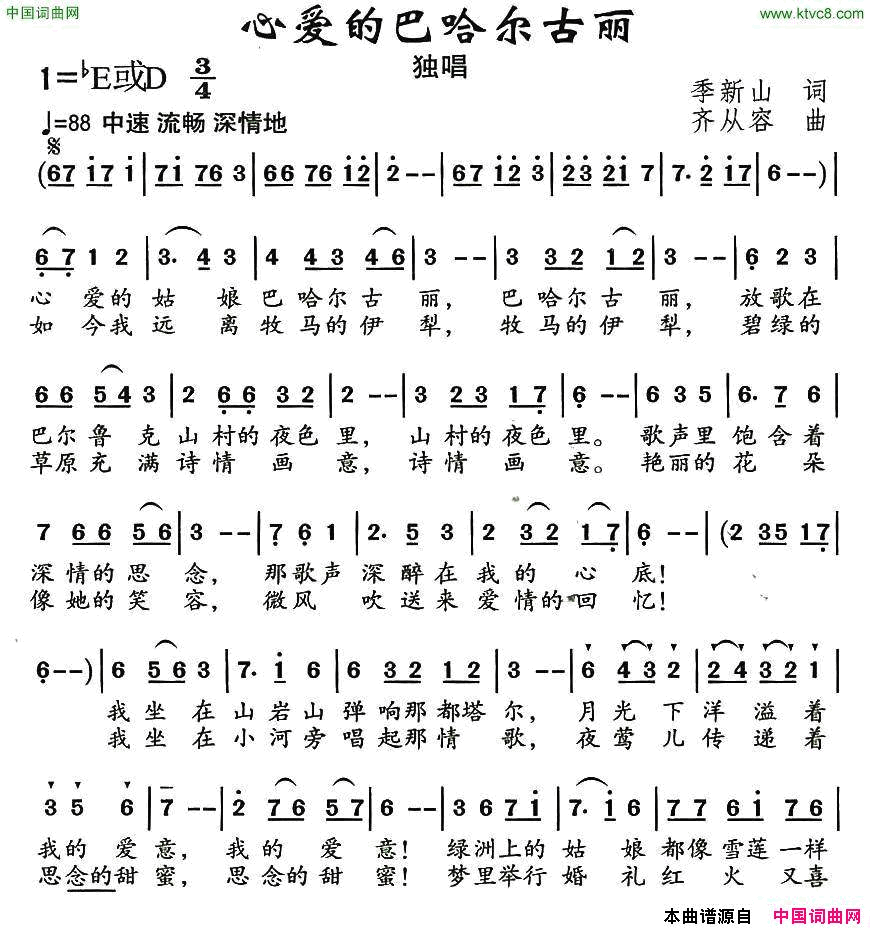 中国词曲网
www.ktvc8.com
心爱的巴哈尔古丽
独唱
1=♭E或D 3/4
季新山 词
♩=88 中速 流畅 深情地
齐从容 曲
(67 17 1 | 71 76 3 | 66 76 12 | 2 - - | 67 12 3 | 23 21 7 | 7. 2 17 | 6 - -) |
6 7 1 2 | 3. 4 3 | 4 43 46 | 3 - - | 3 32 12 | 3 - - | 6 2 3 |
心 爱的 姑 娘 巴 哈尔 古 丽, 巴 哈尔 古 丽, 放歌在
如 今我 远 离 牧 马的 伊 犁, 牧 马的 伊 犁, 碧绿的
66 54 3 | 2 66 32 | 2 - - | 3 23 17 | 6 - - | 6 3 5 | 6. 7 6 |
巴尔 鲁 克 山 村的 夜色 里, 山 村的 夜色 里。 歌声里 饱 含着
草原 充 满 诗 情 画 意, 诗 情 画 意。 艳丽的 花 朵
7 66 56 | 3 - - | 7 6 1 | 2. 5 3 | 2 32 17 | 6 - - | (2 35 17 |
深 情的 思 念, 那歌声 深 醉在 我 的 心 底!
像 她的 笑 容, 微风 吹 送来 爱 情的 回 忆!
6 - -) | 6 56 3 | 7. 1 6 | 6 32 12 | 3 - - | 6 43 2 | 24 32 1 |
我 坐 在 山 岩山 弹 响那 都塔 尔, 月 光 下 洋 溢 着
我 坐 在 小 河旁 唱 起那 情 歌, 夜 莺 儿 传 递 着
3 5 6 | 7 - - | 2 76 57 | 6 - - | 36 57 1 | 7. 1 6 | 77 61 76 |
我的 爱 意, 我 的 爱 意! 绿洲上的 姑 娘 都像 雪莲 一样
思念的甜 蜜, 思 念的 甜 蜜! 梦里举行 婚 礼 红 火 又喜
本曲谱源自 中国词曲网